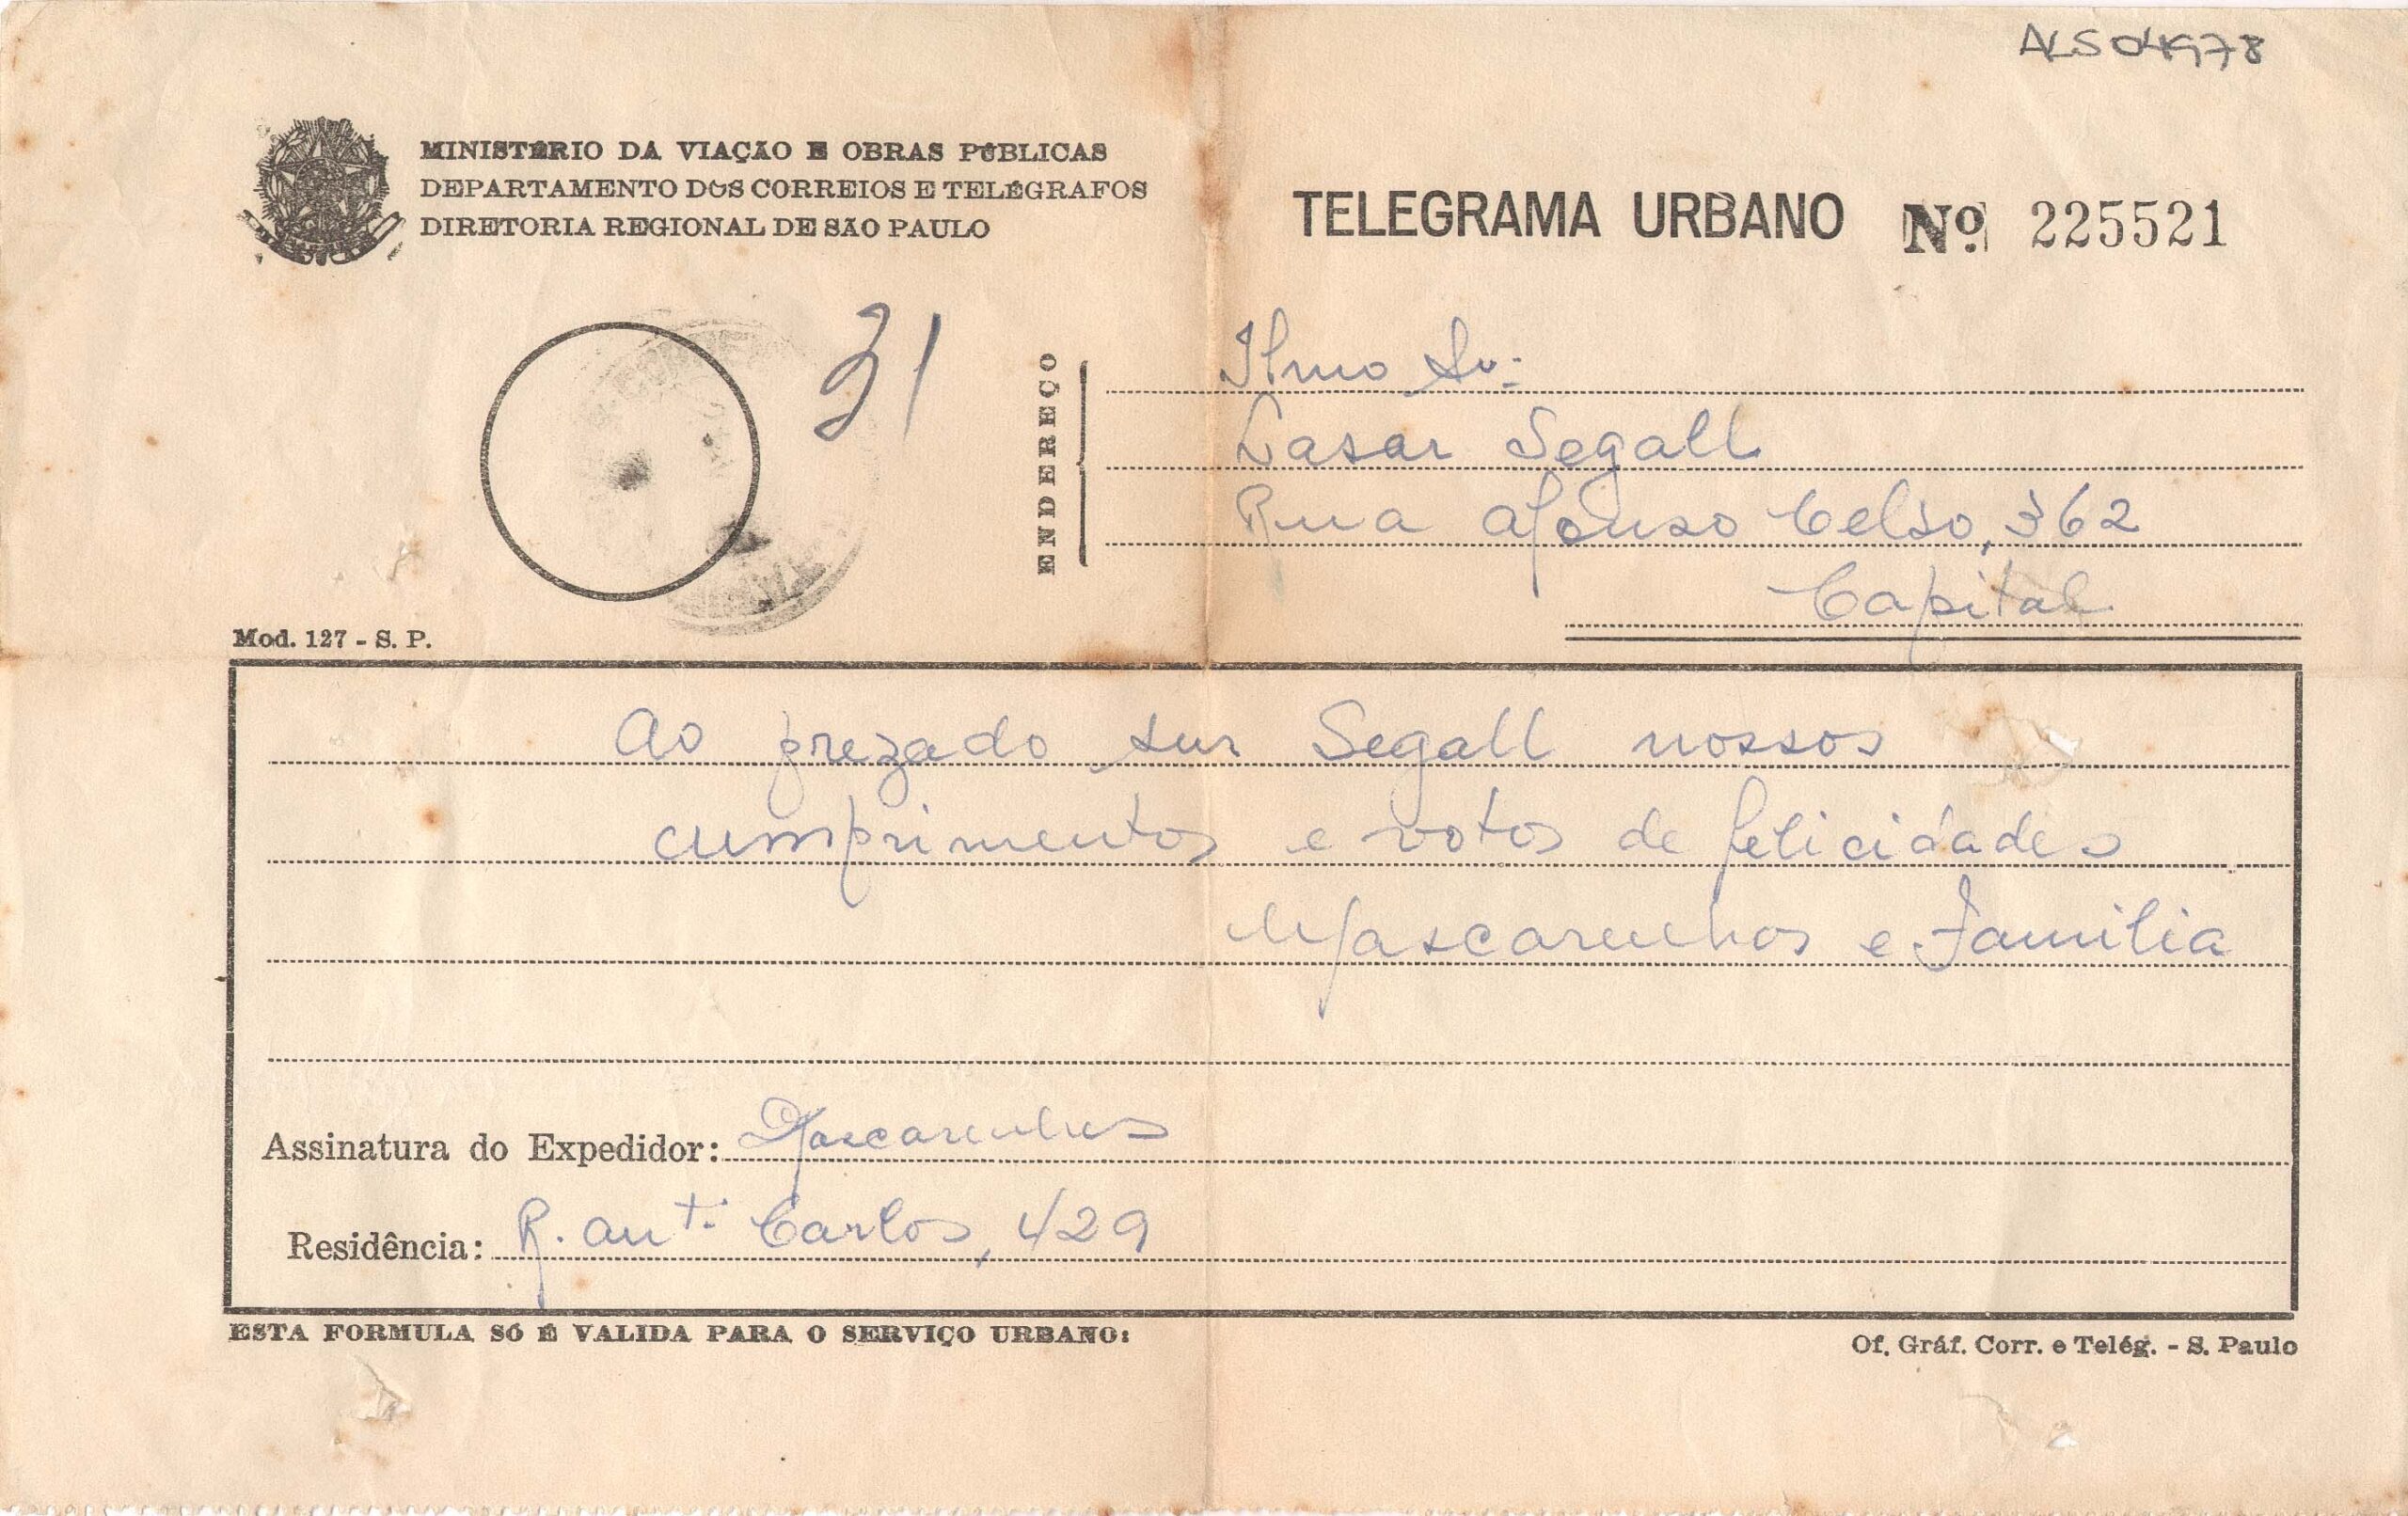 ALS 04978
MINISTÉRIO DA VIAÇÃO E OBRAS PÚBLICAS
DEPARTAMENTO DOS CORREIOS E TELÉGRAFOS
DIRETORIA REGIONAL DE SÃO PAULO
TELEGRAMA URBANO Nº 225521
31
ENDEREÇO
Ilmo Sr:
Lasar Segall
Rua Afonso Celso, 362
Capital
Mod. 127 - S. P.
Ao prezado snr Segall nossos
cumprimentos e votos de felicidades
Mascarenhas e Familia
Assinatura do Expedidor: Mascarenhas
Residência: R. Ant. Carlos, 429
ESTA FORMULA SÓ É VALIDA PARA O SERVIÇO URBANO:
Of. Gráf. Corr. e Telég. - S. Paulo